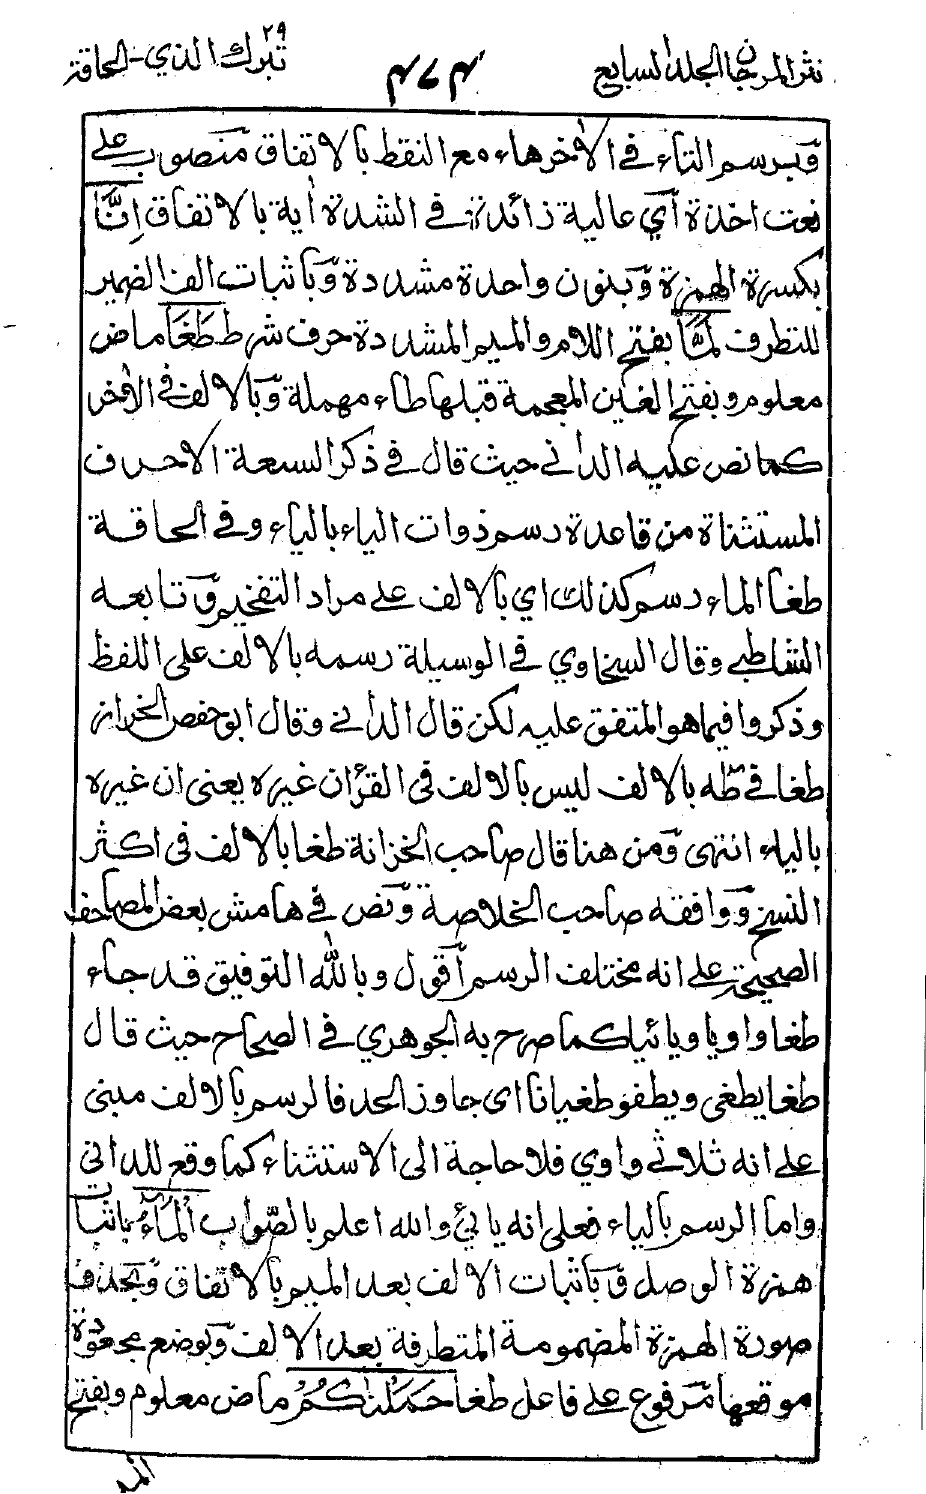 نثر المرجان المجلد السابع
٤٧٤
تبرك الذي ٢٩ - الحاقة
وبرسم التاء في الآخر هاء مع النقط بالاتفاق منصوب على
نعت اخذة أي عالية زائدة في الشدة اٰية بالاتفاق اِنَّا
بكسرة الهمزة وبنون واحدة مشددة وباثبات الف الضمير
للتطرف لَمَّا بفتح اللام والميم المشددة حرف شرط طَغَا ماض
معلوم وبفتح الغين المعجمة قبلها طاء مهملة وبالالف في الآخر
كما نص عليه الداني حيث قال في ذكر السبعة الاحرف
المستثناة من قاعدة رسم ذوات الياء بالياء وفي الحاقة
طغا الماء رسم كذلك اي بالالف على مراد التفخيم وتابعه
الشاطبي وقال السخاوي في الوسيلة رسمه بالالف على اللفظ
وذكروا فيما هو المتفق عليه لكن قال الداني وقال ابو حفص الخراز
طغا في طٰه بالالف ليس بالالف في القرآن غيره يعنى ان غيره
بالياء انتهى ومن هنا قال صاحب الخزانة طغا بالالف في اكثر
النسخ ووافقه صاحب الخلاصة ونص في هامش بعض المصاحف
الصحيحة على انه مختلف الرسم أقول وبالله التوفيق قد جاء
طغا واويا ويائيا كما صرح به الجوهري في الصحاح حيث قال
طغا يطغى ويطغو طغيانا اى جاوز الحد فالرسم بالالف مبنى
على انه ثلاثي واوي فلا حاجة الى الاستثناء كما وقع للدانى
واما الرسم بالياء فعلى انه يائي والله اعلم بالصواب الْمَآءُ باثبات
همزة الوصل وباثبات الالف بعد الميم بالاتفاق وبحذف
صورة الهمزة المضمومة المتطرفة بعد الالف وبوضع مجعودة
موقعها مرفوع على فاعل طغا حَمَلْنٰكُمْ ماض معلوم وبفتح